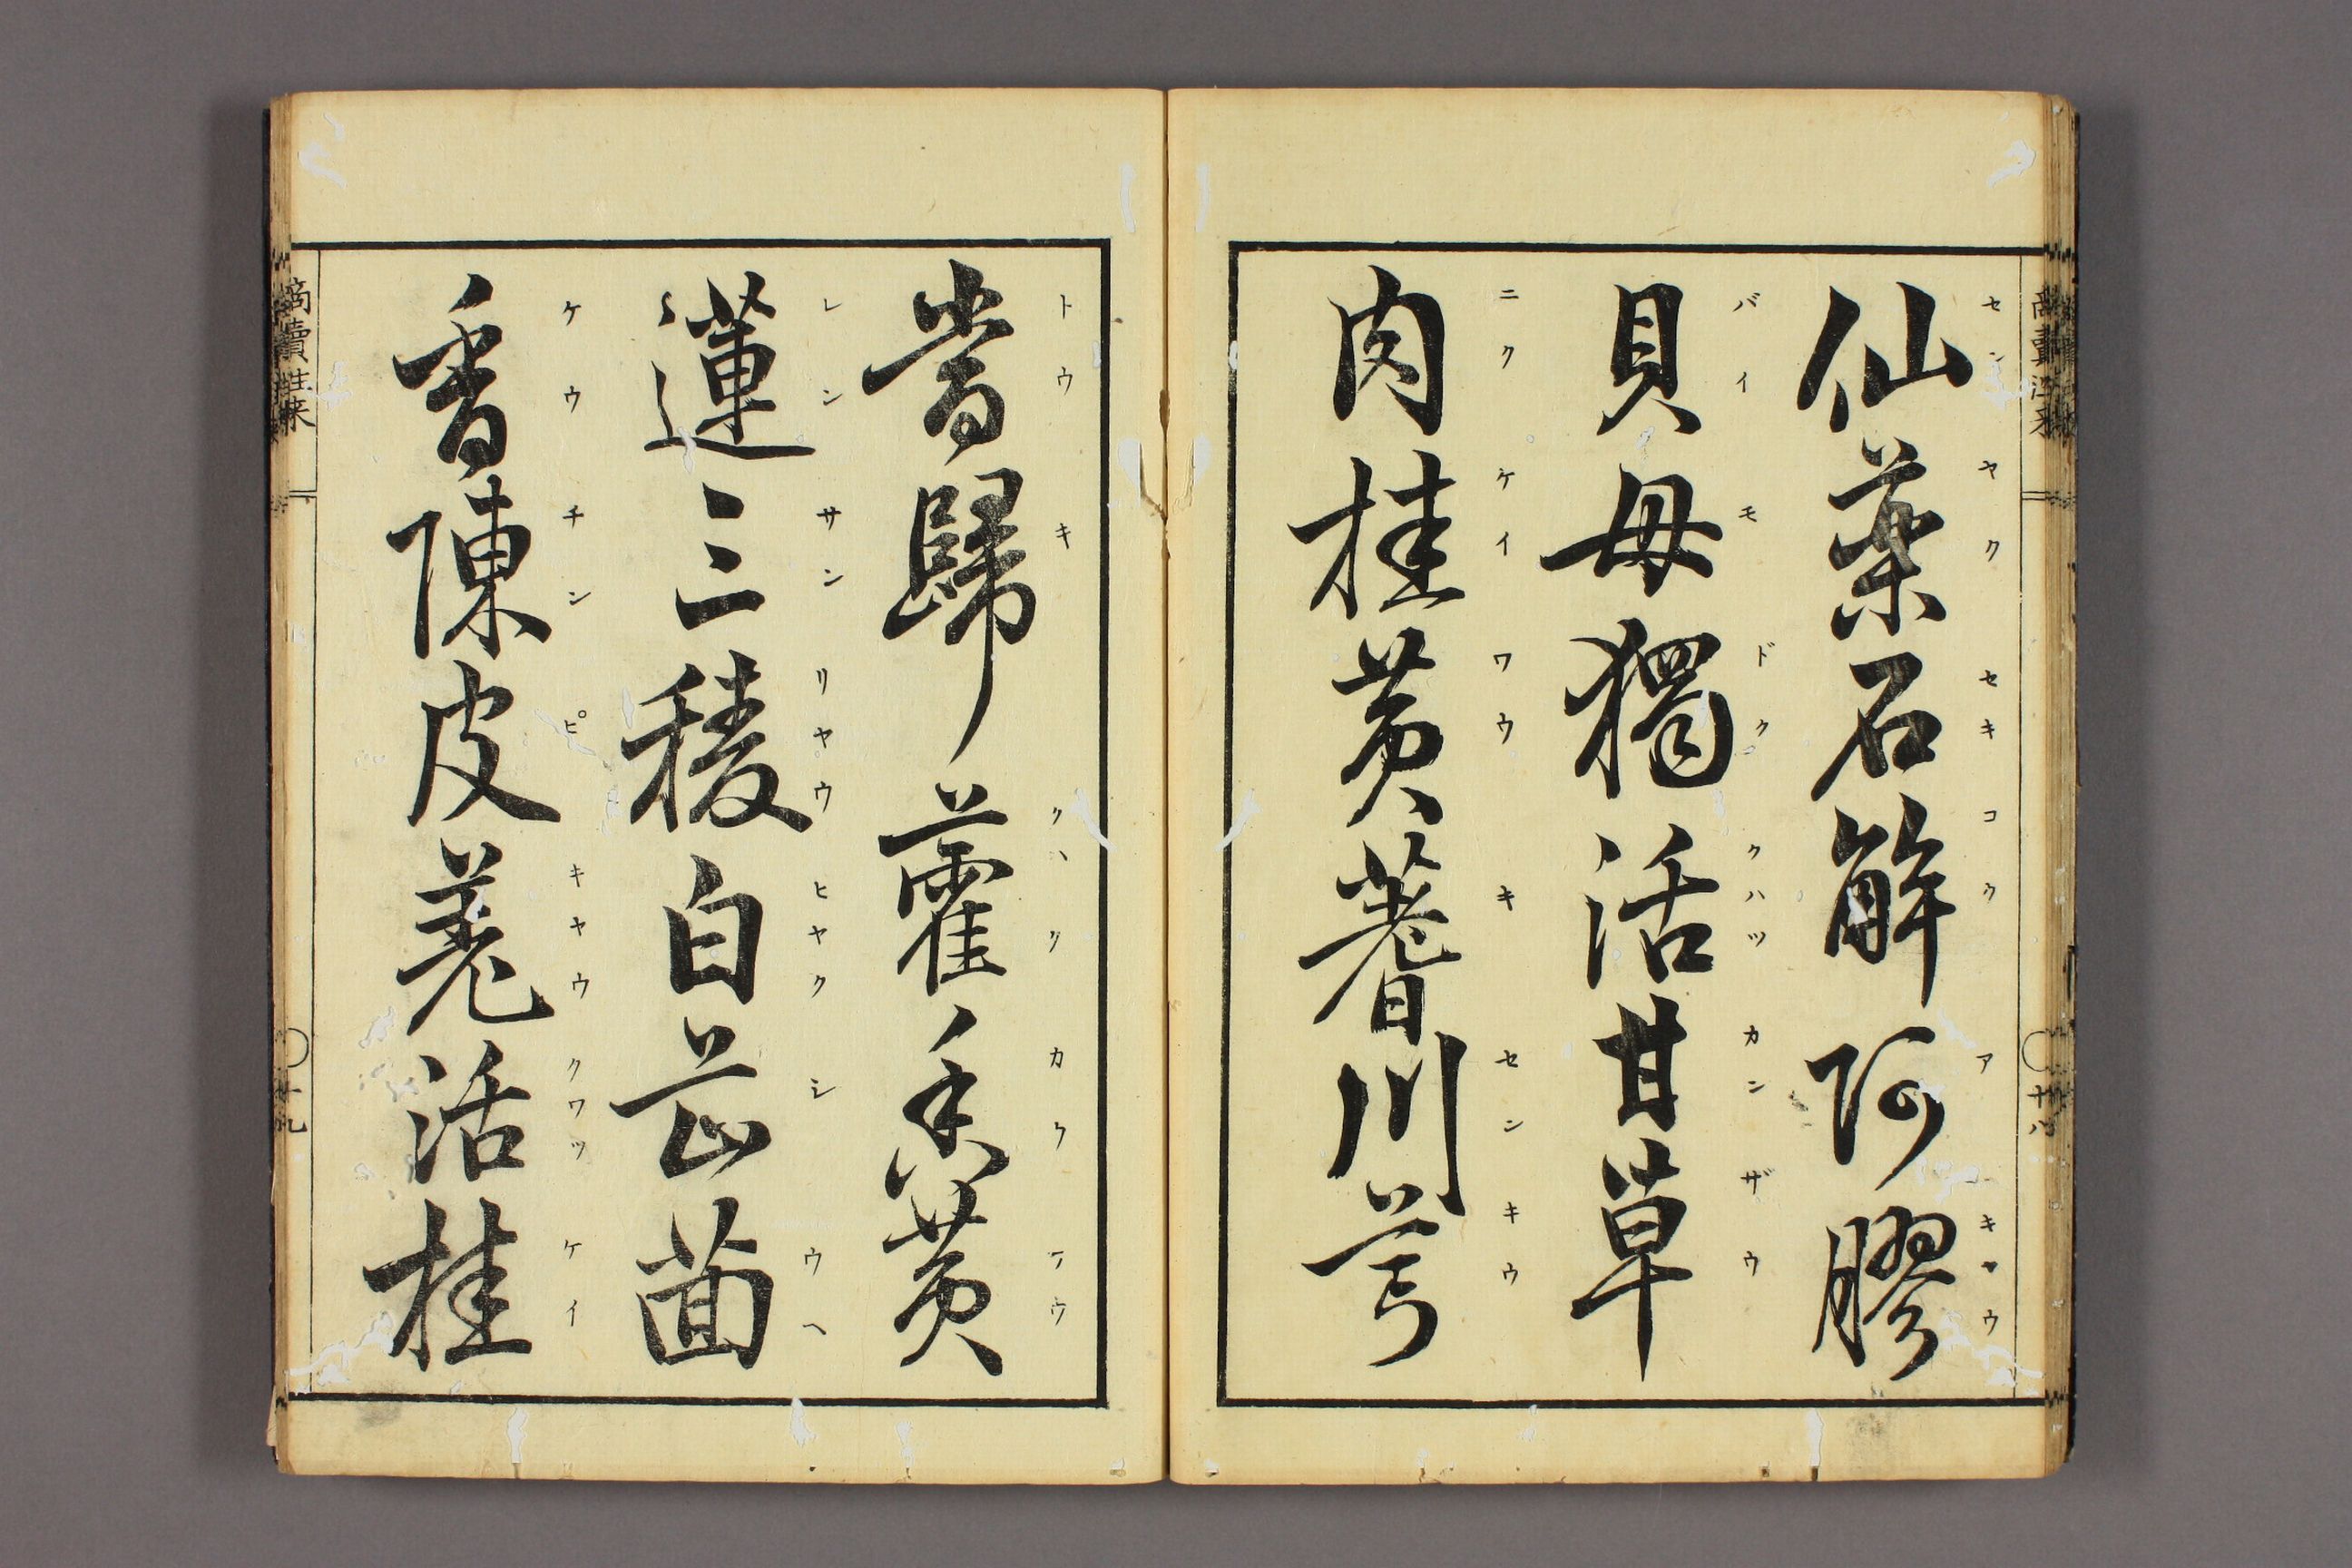 仙藥石斛阿膠
セン ヤク セキ コク ア キヤウ
貝母獨活甘草
バイ モ ドク クハツ カン ザウ
肉桂黄蓍川芎
ニク ケイ ワウ キ セン キウ
十八
當歸藿香黄
トウ キ クハク カウ ワウ
蓮三稜白芷茴
レン サン リヤウ ヒヤク シ ウヘ
香陳皮羌活桂
ケウ チン ピ キヤウ クワツ ケイ
往来
十九